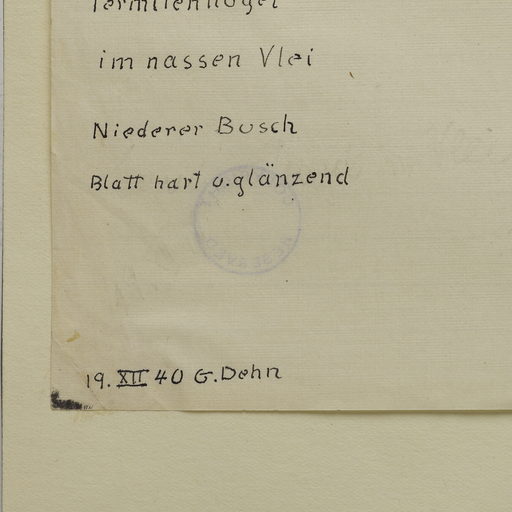 Termitenhügel
im nassen Vlei
Niederer Busch
Blatt hart u. glänzend
19. XII 40 G. Dehn